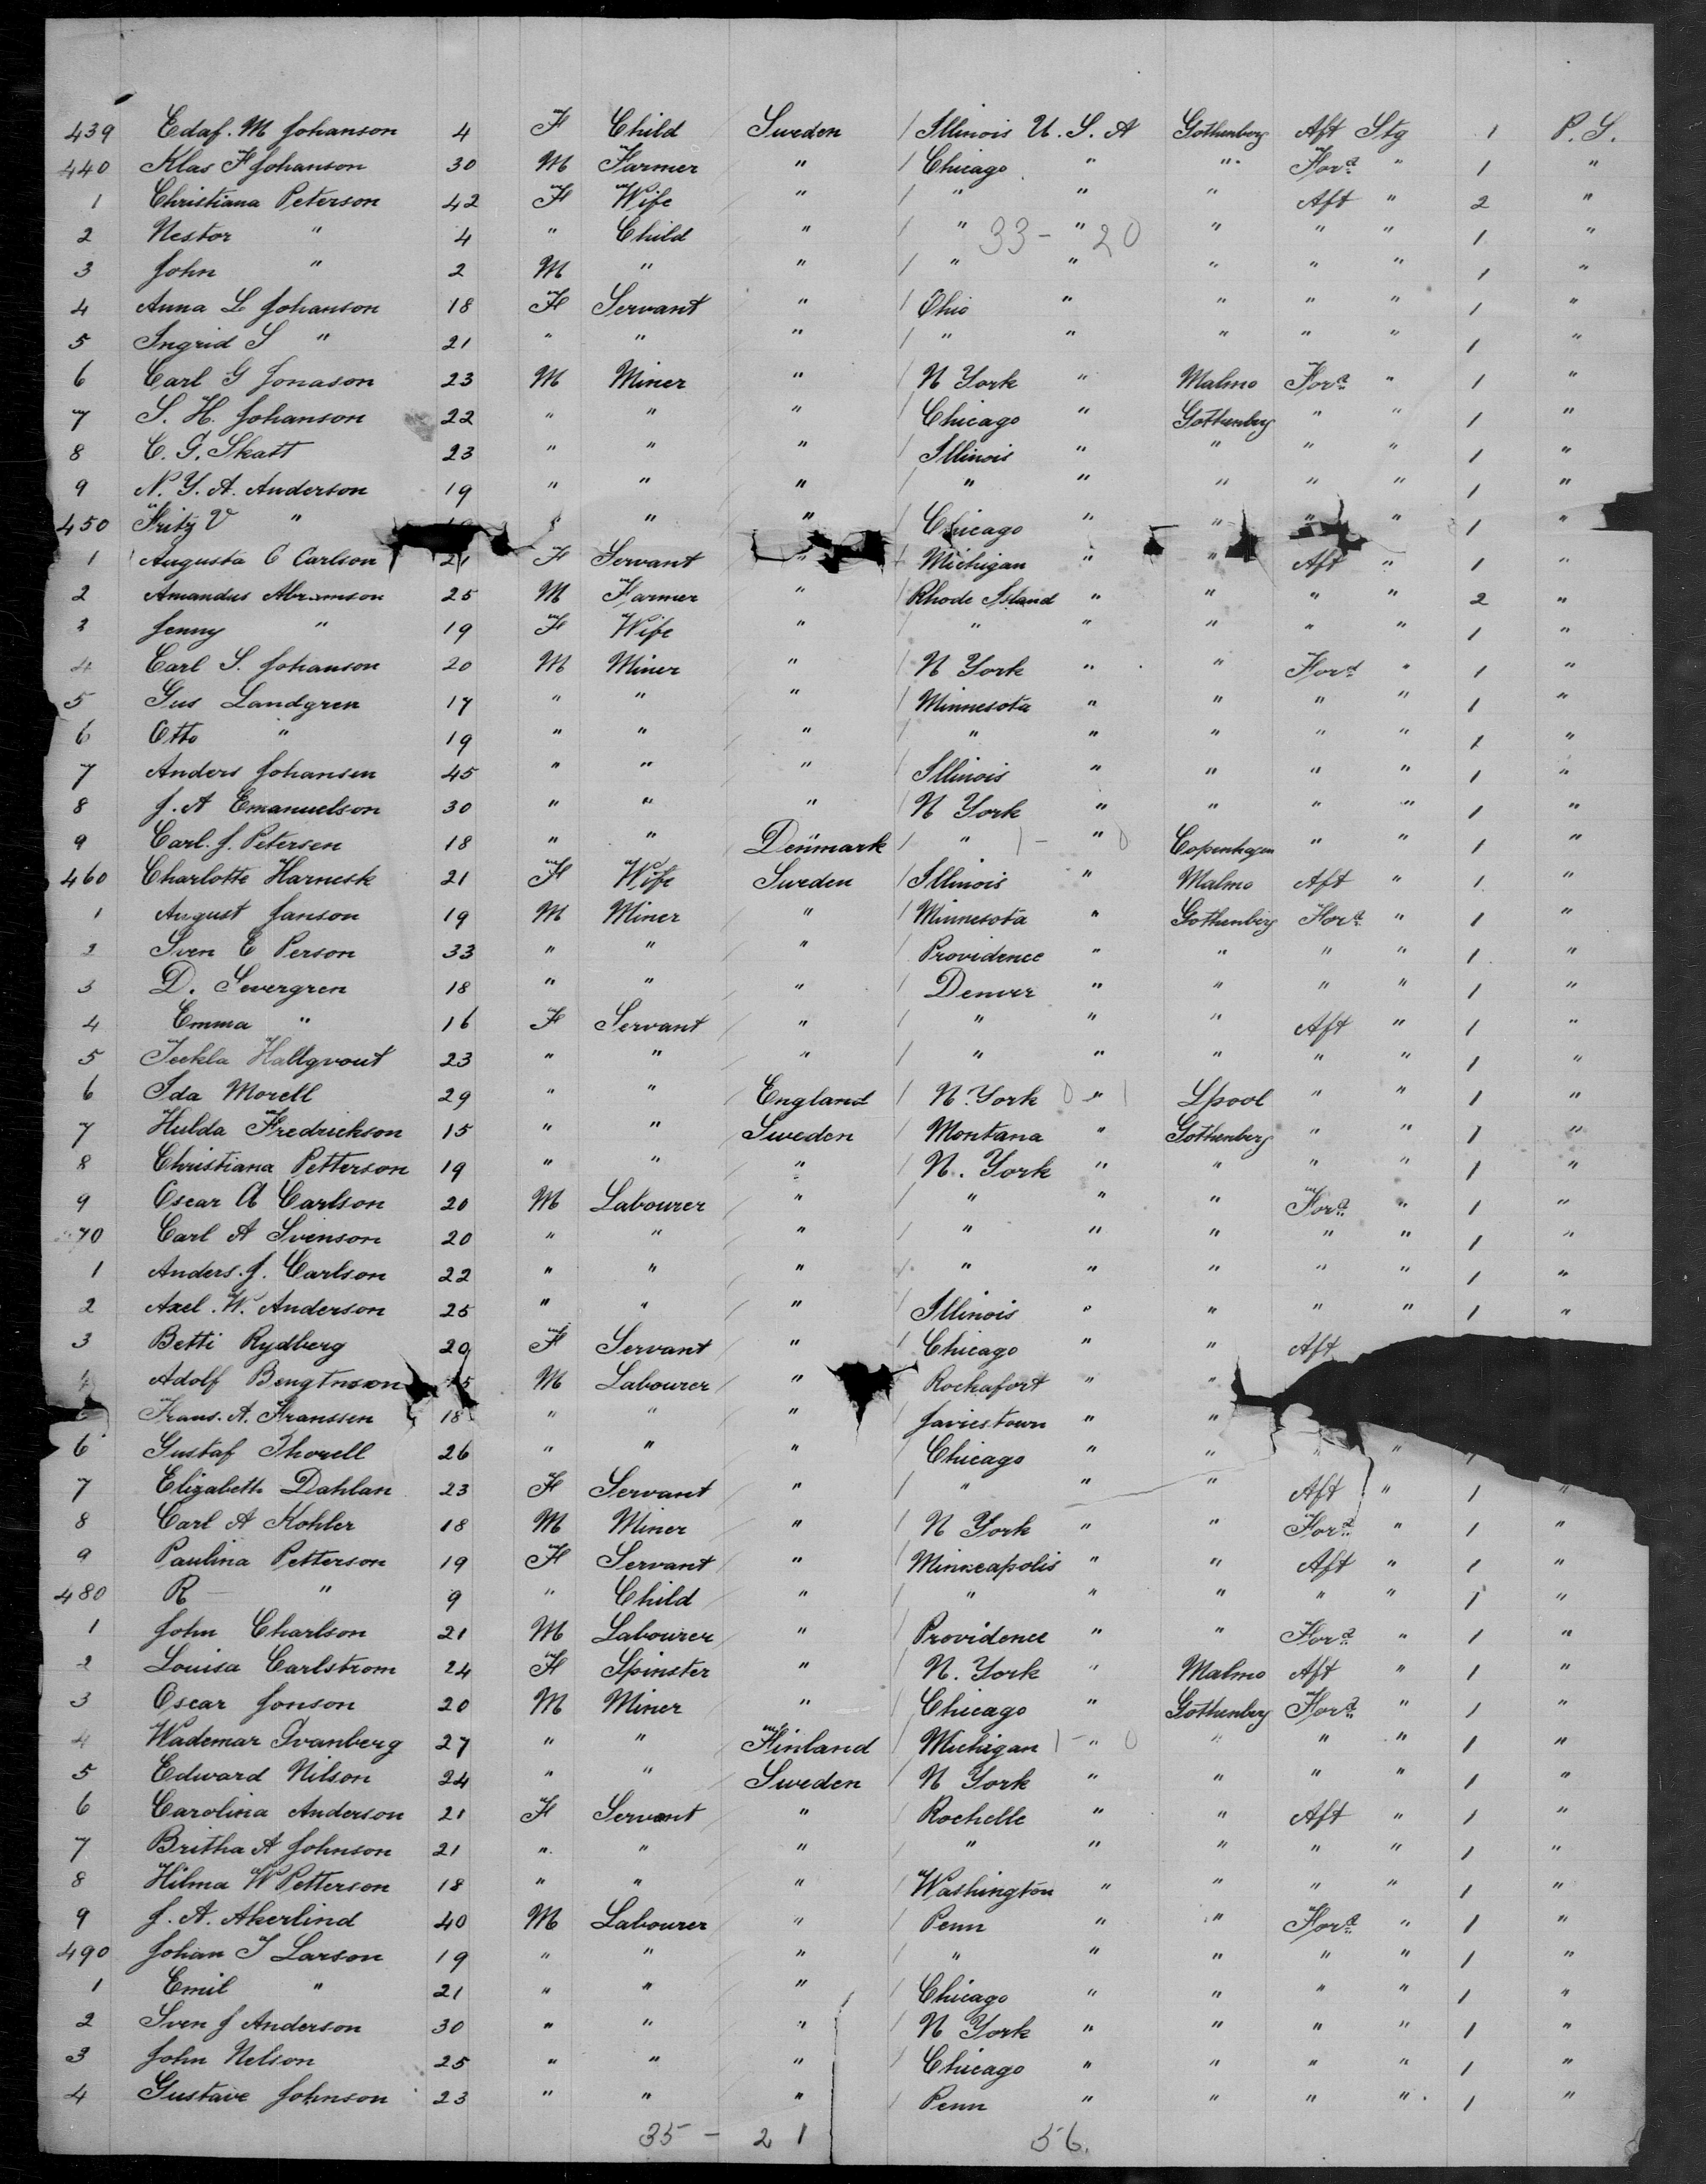 439 Edaf. M Johanson 4 F Child Sweden / Illinois U. S. A Gothenberg Aft Stg 1 P. S.
440 Klas F Johanson 30 M Farmer " / Chicago " " Ford " 1 "
1 Christiana Peterson 42 F Wife " / " " " Aft " 2 "
2 Nestor " 4 " Child " / " " " " " 1 "
33 - 20
3 John " 2 M " " / " " " " " 1 "
4 Anna L Johanson 18 F Servant " / Ohio " " " " 1 "
5 Ingrid S " 21 " " " / " " " " " 1 "
6 Carl G Jonason 23 M Miner " / N York " Malmo Ford " 1 "
7 S. H. Johanson 22 " " " / Chicago " Gothenberg " " 1 "
8 C. G. Skatt 23 " " " / Illinois " " " " 1 "
9 N. Y. A. Anderson 19 " " " / " " " " " 1 "
450 Fritz V " " " / Chicago " " " " 1 "
1 Augusta C Carlson 21 F Servant " / Michigan " " Aft " 1 "
2 Amandus Abramson 25 M Farmer " / Rhode Island " " " " 2 "
3 Jenny " 19 F Wife " / " " " " " 1 "
4 Carl S. Johanson 20 M Miner " / N York " " Ford " 1 "
5 Gus Landgren 17 " " " / Minnesota " " " " 1 "
6 Otto " 19 " " " / " " " " " 1 "
7 Anders Johansen 45 " " " / Illinois " " " " 1 "
8 J. A Emanuelson 30 " " " / N York " " " " 1 "
9 Carl. J. Petersen 18 " " Denmark / " 1 - " 0 Copenhagen " " 1 "
460 Charlotte Harnesk 21 F Wife Sweden / Illinois " Malmo Aft " 1 "
1 August Janson 19 M Miner " / Minnesota " Gothenberg Ford " 1 "
2 Sven E Person 33 " " " / Providence " " " " 1 "
3 D. Severgren 18 " " " / Denver " " " " 1 "
4 Emma " 16 F Servant " / " " " Aft " 1 "
5 Teckla Hallgvout 23 " " " / " " " " " 1 "
6 Ida Morell 29 " " England / N. York 0 " 1 Lpool " " 1 "
7 Hulda Fredrickson 15 " " Sweden / Montana " Gothenberg " " 1 "
8 Christiana Petterson 19 " " " / N. York " " " " 1 "
9 Oscar A Carlson 20 M Labourer " / " " " Ford " 1 "
70 Carl A Svenson 20 " " " / " " " " " 1 "
1 Anders. J. Carlson 22 " " " / " " " " " 1 "
2 Axel. W. Anderson 25 " " " / Illinois " " " " 1 "
3 Betti Rydberg 29 F Servant " / Chicago " " Aft
4 Adolf Bengtnson M Labourer " Rockafort " "
Frans. A. Franssen 18 " " " / Jamestown " "
6 Gustaf Thorell 26 " " " / Chicago " " " " 1
7 Elizabeth Dahlan 23 F Servant " / " " " Aft " 1 "
8 Carl A Kohler 18 M Miner " / N York " " Ford " 1 "
9 Paulina Petterson 19 F Servant " / Minneapolis " " Aft " 1 "
480 R " 9 " Child " / " " " " " 1 "
1 John Charlson 21 M Labourer " / Providence " " Ford " 1 "
2 Louisa Carlstrom 24 F Spinster " / N. York " Malmo Aft " 1 "
3 Oscar Jonson 20 M Miner " / Chicago " Gothenberg Ford " 1 "
4 Wademar Ivanberg 27 " " Finland / Michigan 1 - " 0 " " " 1 "
5 Edward Nilson 24 " " Sweden / N York " " " " 1 "
6 Carolina Anderson 21 F Servant " / Rochelle " " Aft " 1 "
7 Britha A Johnson 21 " " " / " " " " " 1 "
8 Hilma W Petterson 18 " " " / Washington " " " " 1 "
9 J. A. Akerlind 40 M Labourer " / Penn " " Ford " 1 "
490 Johan T Larson 19 " " " / " " " " " 1 "
1 Emil " 21 " " " / Chicago " " " " 1 "
2 Sven J Anderson 30 " " " / N York " " " " 1 "
3 John Nelson 25 " " " / Chicago " " " " 1 "
4 Gustave Johnson 23 " " " / Penn " " " " 1 "
35 - 21 56.